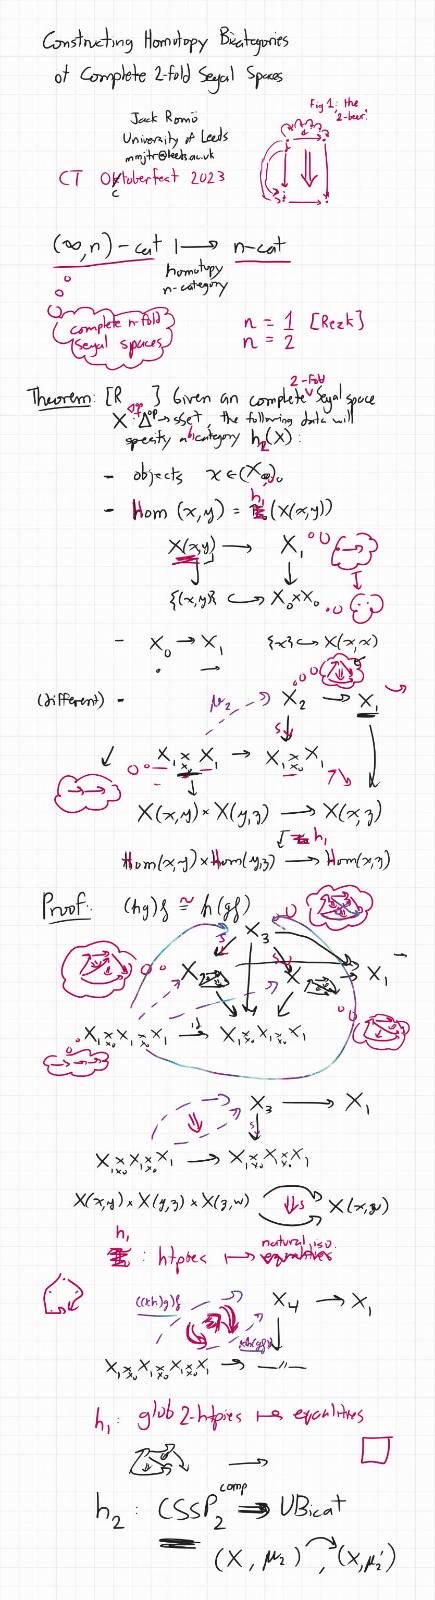 Constructing Homotopy Bicategories
of Complete 2-fold Segal Spaces
Fig 1: the
"2-bear"
Jack Romö
University of Leeds
mmjtr@leeds.ac.uk
CT Oktoberfest 2023
c
(∞,n)-cat ⟼ n-cat
homotopy
n-category
complete n-fold
Segal spaces
n = 1 [Rezk]
n = 2
2-fold
Theorem: [R ] Given an complete Segal space
X : Δᵒᵖ → sSet, the following data will
specify a bicategory h₂(X):
- objects x ∈ (X₀)₀
- Hom (x,y) = h₁(X(x,y))
X(x,y) → X₁
{(x,y)} ↪ X₀×X₀
- X₀ → X₁ {x} ↪ X(x,x)
(different) - μ₂ X₂ → X₁
X₁ ×_{X₀} X₁ → X₁ ×_{X₀} X₁
X(x,y) × X(y,z) → X(x,z)
h₁
Hom(x,y) × Hom(y,z) → Hom(x,z)
Proof: (hg)f ≅ h(gf)
X₃
X₂ X₂ → X₁
X₁ ×_{X₀} X₁ ×_{X₀} X₁ → X₁ ×_{X₀} X₁ ×_{X₀} X₁
X₃ → X₁
X₁ ×_{X₀} X₁ ×_{X₀} X₁ → X₁ ×_{X₀} X₁ ×_{X₀} X₁
X(x,y) × X(y,z) × X(z,w) ⇓s X(x,w)
h₁ : htpies ⟼ natural iso.
((kh)g)f X₄ → X₁
k(h(gf))
X₁ ×_{X₀} X₁ ×_{X₀} X₁ ×_{X₀} X₁ → —"—
h₁: glob 2-htpies ⟼ equalities
h₂ : CSSP₂ᶜᵒᵐᵖ ⟹ UBicat
(X, μ₂), (X, μ₂')